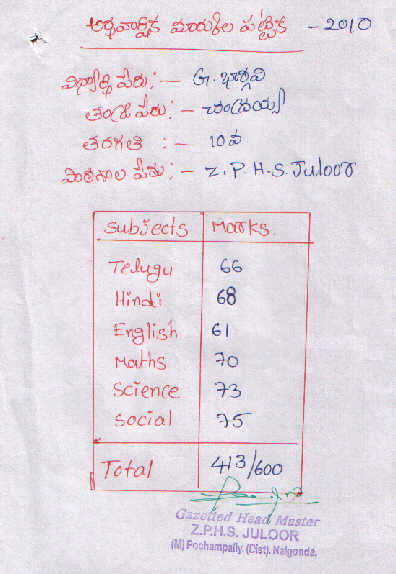 అర్థవార్షిక మార్కుల పట్టిక - 2010
విద్యార్థి పేరు:- G. భార్గవి
తండ్రి పేరు:- చంద్రయ్య
తరగతి :- 10వ
పాఠశాల పేరు:- Z.P.H.S. Juloor
Subjects Marks
Telugu 66
Hindi 68
English 61
Maths 70
Science 73
Social 75
Total 413/600
Gazetted Head Master
Z.P.H.S. JULOOR
(M) Pochampally, (Dist). Nalgonda.